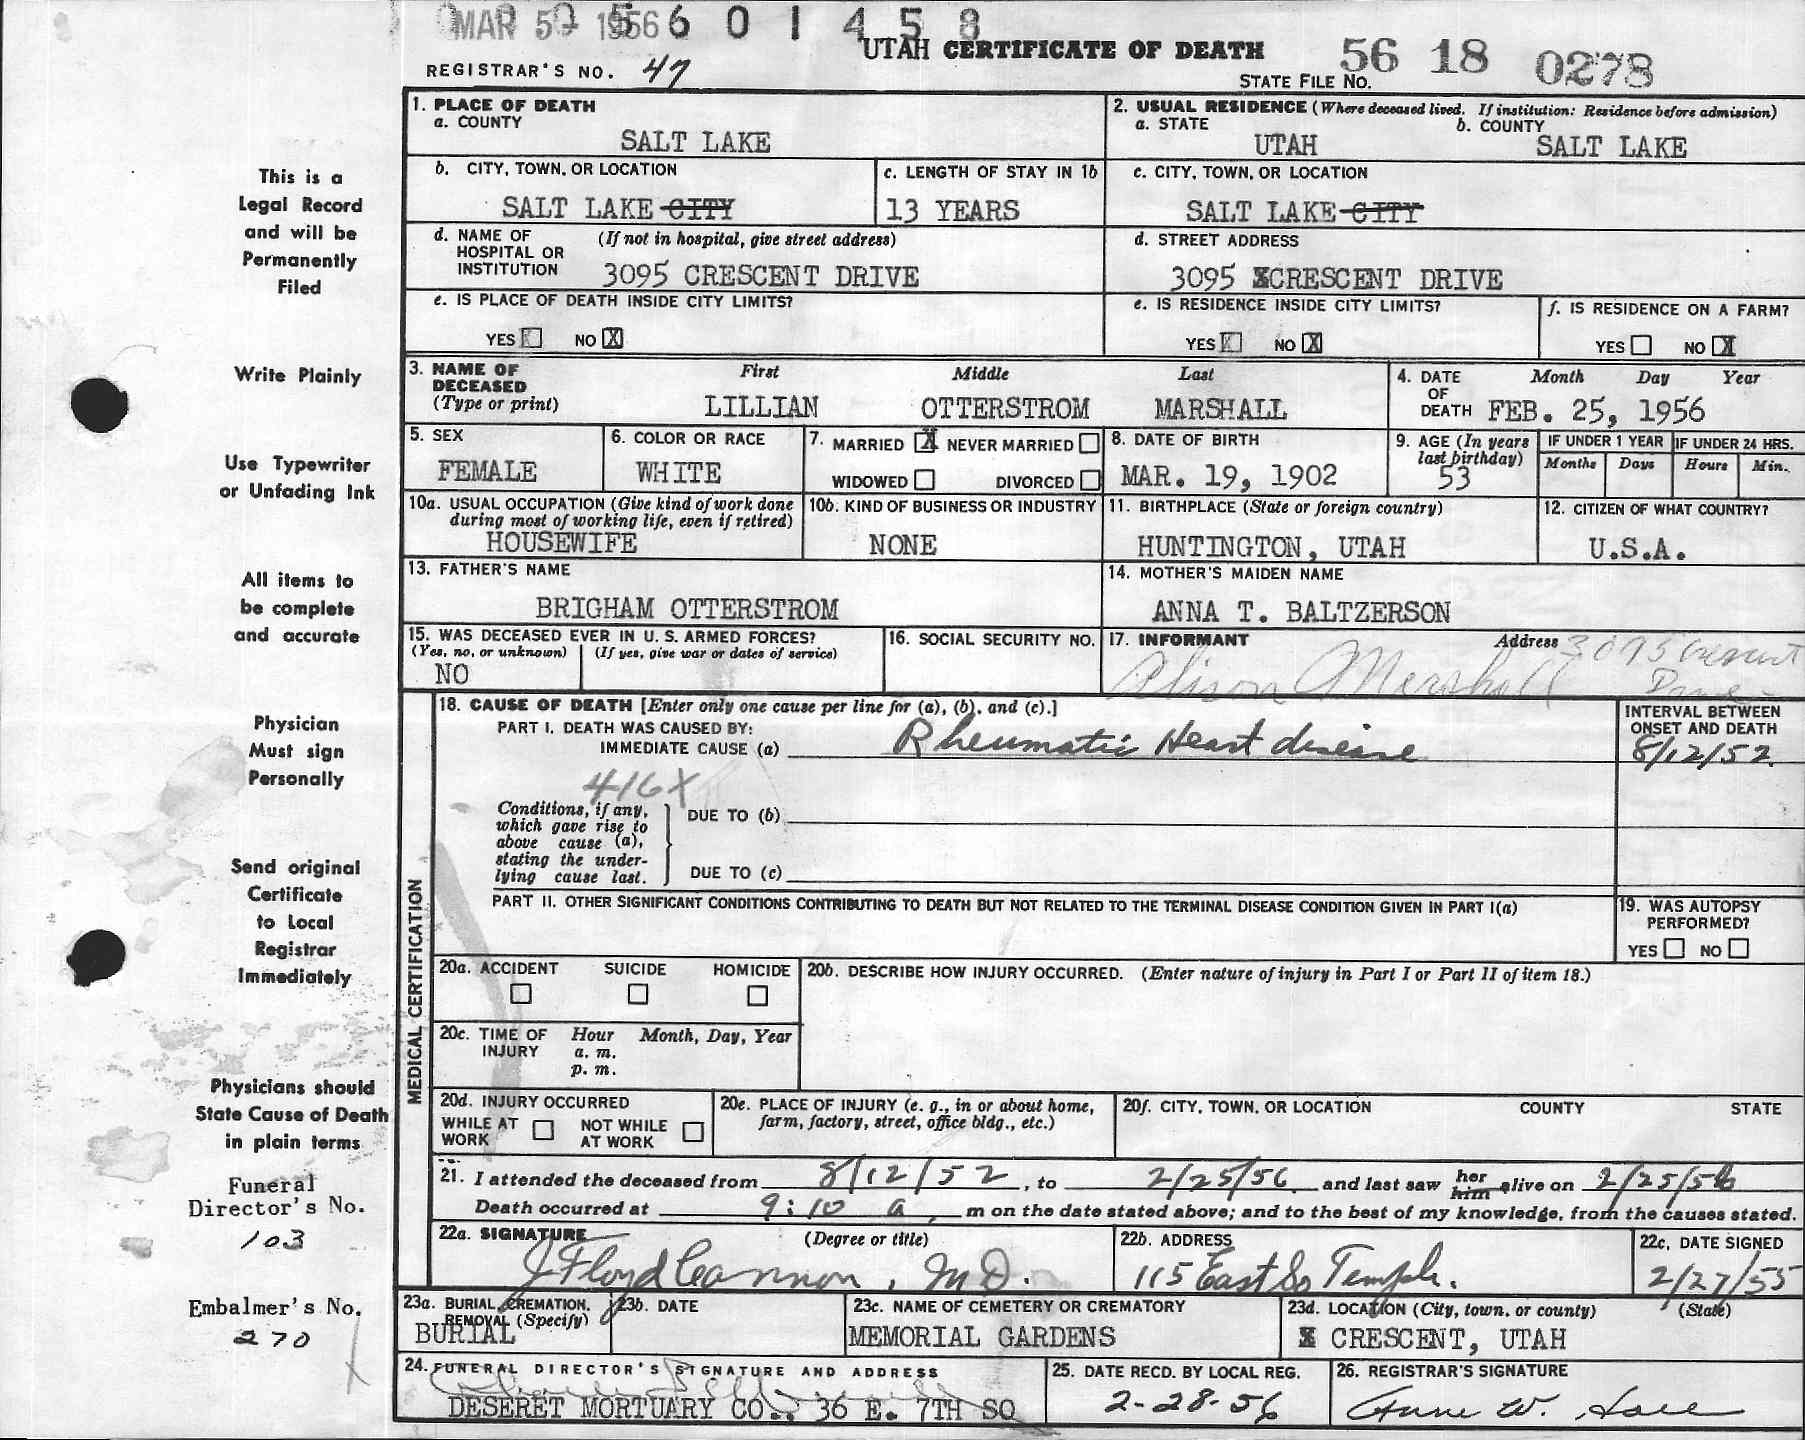 MAR 5 1956 6 0 1 4 5 8
UTAH CERTIFICATE OF DEATH
REGISTRAR'S NO. 47
STATE FILE NO. 56 18 0278
1. PLACE OF DEATH
a. COUNTY
SALT LAKE
2. USUAL RESIDENCE (Where deceased lived. If institution: Residence before admission)
a. STATE b. COUNTY
UTAH SALT LAKE
b. CITY, TOWN, OR LOCATION
SALT LAKE CITY
c. LENGTH OF STAY IN 1b
13 YEARS
c. CITY, TOWN, OR LOCATION
SALT LAKE CITY
d. NAME OF HOSPITAL OR INSTITUTION (If not in hospital, give street address)
3095 CRESCENT DRIVE
d. STREET ADDRESS
3095 CRESCENT DRIVE
e. IS PLACE OF DEATH INSIDE CITY LIMITS?
YES NO X
e. IS RESIDENCE INSIDE CITY LIMITS?
YES NO X
f. IS RESIDENCE ON A FARM?
YES NO X
3. NAME OF DECEASED (Type or print)
First Middle Last
LILLIAN OTTERSTROM MARSHALL
4. DATE OF DEATH Month Day Year
FEB. 25, 1956
5. SEX
FEMALE
6. COLOR OR RACE
WHITE
7. MARRIED X NEVER MARRIED
WIDOWED DIVORCED
8. DATE OF BIRTH
MAR. 19, 1902
9. AGE (In years last birthday)
53
IF UNDER 1 YEAR IF UNDER 24 HRS.
Months Days Hours Min.
10a. USUAL OCCUPATION (Give kind of work done during most of working life, even if retired)
HOUSEWIFE
10b. KIND OF BUSINESS OR INDUSTRY
NONE
11. BIRTHPLACE (State or foreign country)
HUNTINGTON, UTAH
12. CITIZEN OF WHAT COUNTRY?
U.S.A.
13. FATHER'S NAME
BRIGHAM OTTERSTROM
14. MOTHER'S MAIDEN NAME
ANNA T. BALTZERSON
15. WAS DECEASED EVER IN U. S. ARMED FORCES?
(Yes, no, or unknown) (If yes, give war or dates of service)
NO
16. SOCIAL SECURITY NO.
17. INFORMANT Address
Alison Marshall 3095 Crescent Drive
18. CAUSE OF DEATH [Enter only one cause per line for (a), (b), and (c).]
PART I. DEATH WAS CAUSED BY:
IMMEDIATE CAUSE (a) Rheumatic Heart disease
INTERVAL BETWEEN ONSET AND DEATH
8/12/52
416X
Conditions, if any, which gave rise to above cause (a), stating the underlying cause last.
DUE TO (b)
DUE TO (c)
PART II. OTHER SIGNIFICANT CONDITIONS CONTRIBUTING TO DEATH BUT NOT RELATED TO THE TERMINAL DISEASE CONDITION GIVEN IN PART I(a)
19. WAS AUTOPSY PERFORMED?
YES NO
MEDICAL CERTIFICATION
20a. ACCIDENT SUICIDE HOMICIDE
20b. DESCRIBE HOW INJURY OCCURRED. (Enter nature of injury in Part I or Part II of item 18.)
20c. TIME OF INJURY Hour Month, Day, Year
a. m.
p. m.
20d. INJURY OCCURRED
WHILE AT WORK NOT WHILE AT WORK
20e. PLACE OF INJURY (e. g., in or about home, farm, factory, street, office bldg., etc.)
20f. CITY, TOWN, OR LOCATION COUNTY STATE
21. I attended the deceased from 8/12/52, to 2/25/56 and last saw her him alive on 2/25/56
Death occurred at 9:10 a m on the date stated above; and to the best of my knowledge, from the causes stated.
22a. SIGNATURE (Degree or title)
J Floyd Cannon, M.D.
22b. ADDRESS
115 East So Temple.
22c. DATE SIGNED
2/27/55
23a. BURIAL, CREMATION, REMOVAL (Specify)
BURIAL
23b. DATE
23c. NAME OF CEMETERY OR CREMATORY
MEMORIAL GARDENS
23d. LOCATION (City, town, or county) (State)
CRESCENT, UTAH
24. FUNERAL DIRECTOR'S SIGNATURE AND ADDRESS
DESERET MORTUARY CO., 36 E. 7TH SO
25. DATE RECD. BY LOCAL REG.
2-28-56
26. REGISTRAR'S SIGNATURE
This is a
Legal Record
and will be
Permanently
Filed
Write Plainly
Use Typewriter
or Unfading Ink
All items to
be complete
and accurate
Physician
Must sign
Personally
Send original
Certificate
to Local
Registrar
Immediately
Physicians should
State Cause of Death
in plain terms
Funeral
Director's No.
103
Embalmer's No.
270